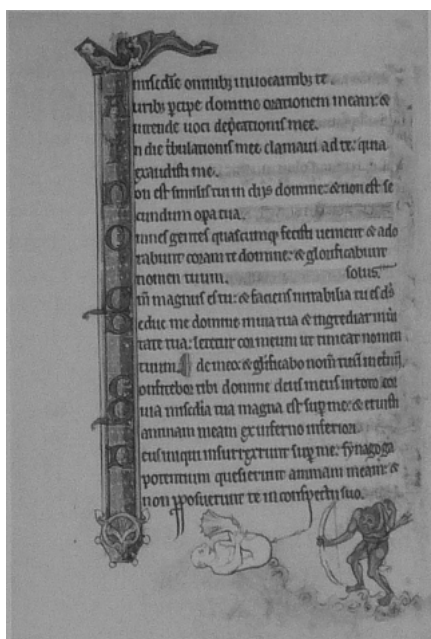 misedie omnibz inuocantibz te.
Auribz pcipe domine orationem meam: &
intende uoci depcationis mee.
In die tribulationis mee clamaui ad te: quia
exaudisti me.
Non est similis tui in diis domine: & non est se
cundum opa tua.
Omnes gentes quascumq fecisti uenient & ado
rabunt coram te domine: & glorificabunt
nomen tuum. solus.
Qm magnus es tu: & faciens mirabilia tu es ds
Deduc me domine in uia tua & ingrediar in ueri
tate tua: letetur cor meum ut timeat nomen
tuum. de meo: & glificabo nom tuu in etnu.
Confitebor tibi domine deus meus in toto cor
Quia misedia tua magna est sup me: & eruisti
animam meam ex inferno inferiori.
Deus iniqui insurrexerunt sup me: synagoga
potentium quesierunt animam meam: &
non pposuerunt te in conspectu suo.